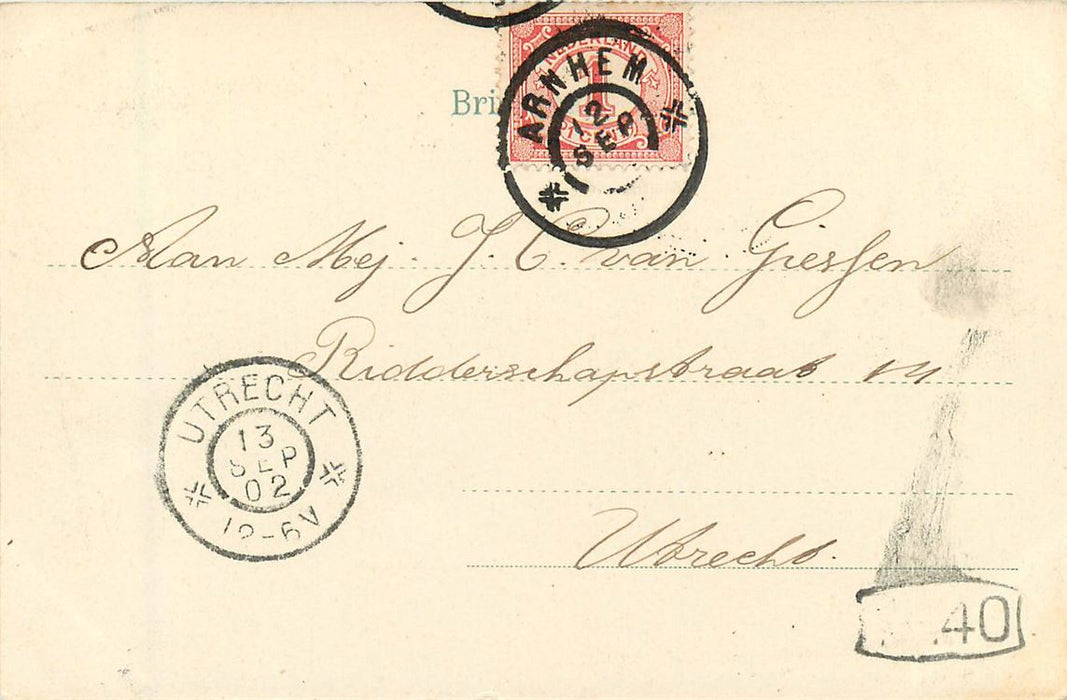 NEDERLAND
1
CENT
ARNHEM
12
SEP
Aan Mej. J. C. van Giessen
Ridderschapstraat
UTRECHT
13
SEP
02
12-6V
Utrecht.
40